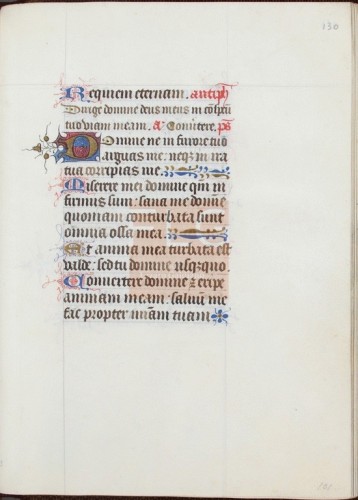 130
Requiem eternam. antiph
Dirige domine deus meus in cōspeu
tuo viam meam. a Conutere. ps
Domine ne in furore tuo
arguas me: neqz in ira
tua corripias me.
Miserere mei domine qm̄ in
firmus sum: sana me domine
quoniam conturbata sunt
omnia ossa mea.
Et anima mea turbata est
valde: sed tu domine usqzquo.
Convertere domine ⁊ eripe
animam meam: salvum me
fac propter mīam tuam